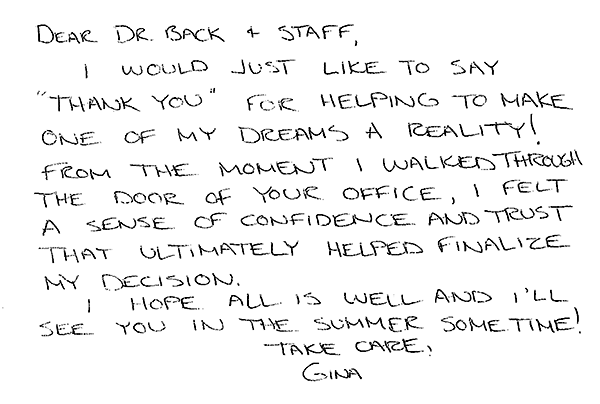 DEAR DR. BACK + STAFF,
I WOULD JUST LIKE TO SAY
"THANK YOU" FOR HELPING TO MAKE
ONE OF MY DREAMS A REALITY!
FROM THE MOMENT I WALKED THROUGH
THE DOOR OF YOUR OFFICE, I FELT
A SENSE OF CONFIDENCE AND TRUST
THAT ULTIMATELY HELPED FINALIZE
MY DECISION.
I HOPE ALL IS WELL AND I'LL
SEE YOU IN THE SUMMER SOMETIME!
TAKE CARE,
GINA